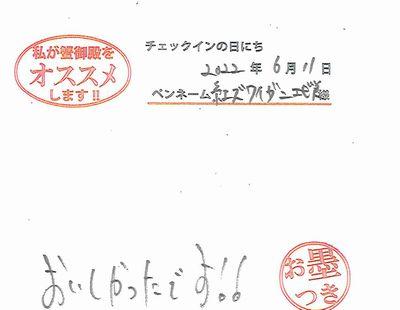 私が蟹御殿を
オススメ
します!!
チェックインの日にち
2022年6月11日
ペンネーム 紅ズワイガニエビ 様
おいしかったです!!
お墨
つき